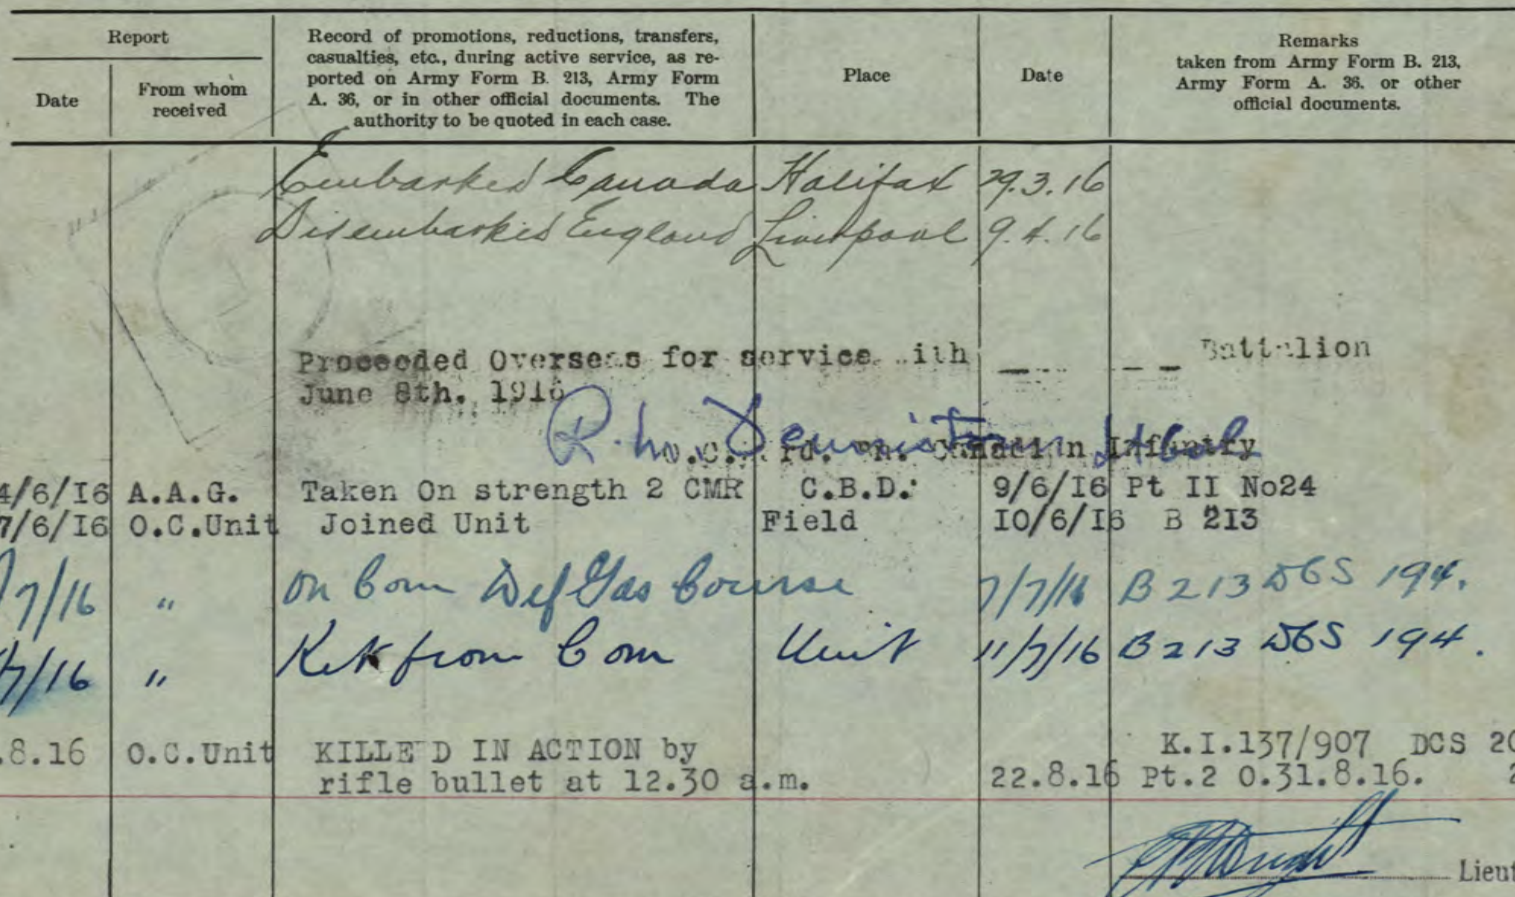 Report
Date
From whom
received
Record of promotions, reductions, transfers,
casualties, etc., during active service, as re-
ported on Army Form B. 213, Army Form
A. 36, or in other official documents. The
authority to be quoted in each case.
Place
Date
Remarks
taken from Army Form B. 213,
Army Form A. 36. or other
official documents.
Embarked Canada Halifax 29.3.16
Disembarked England Liverpool 9.4.16
Proceeded Overseas for service ith Battalion
June 8th. 1916
Canadian Infantry
4/6/I6 A.A.G. Taken On strength 2 CMR C.B.D. 9/6/I6 Pt II No24
7/6/I6 O.C.Unit Joined Unit Field IO/6/I6 B 2I3
/7/16 " On Com Def Gas Course 7/7/16 B 213 DCS 194.
/7/16 " from Com Unit 11/7/16 B 213 DCS 194.
.8.16 O.C.Unit KILLE D IN ACTION by K.I.137/907 DCS 20
rifle bullet at 12.30 a.m. 22.8.16 Pt.2 O.31.8.16. 2
Lieut